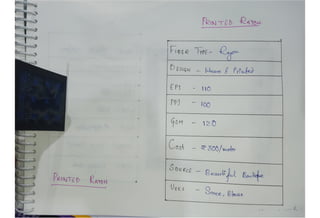 PRINTED RAYON
FIBER TYPE- Rayon
DESIGN - Weave & Printed
EPI - 110
PPI - 100
GSM - 120
Cost - ₹300/meter
SOURCE - Beautiful Boutique
USES - Saree, Blouse
PRINTED RAYON